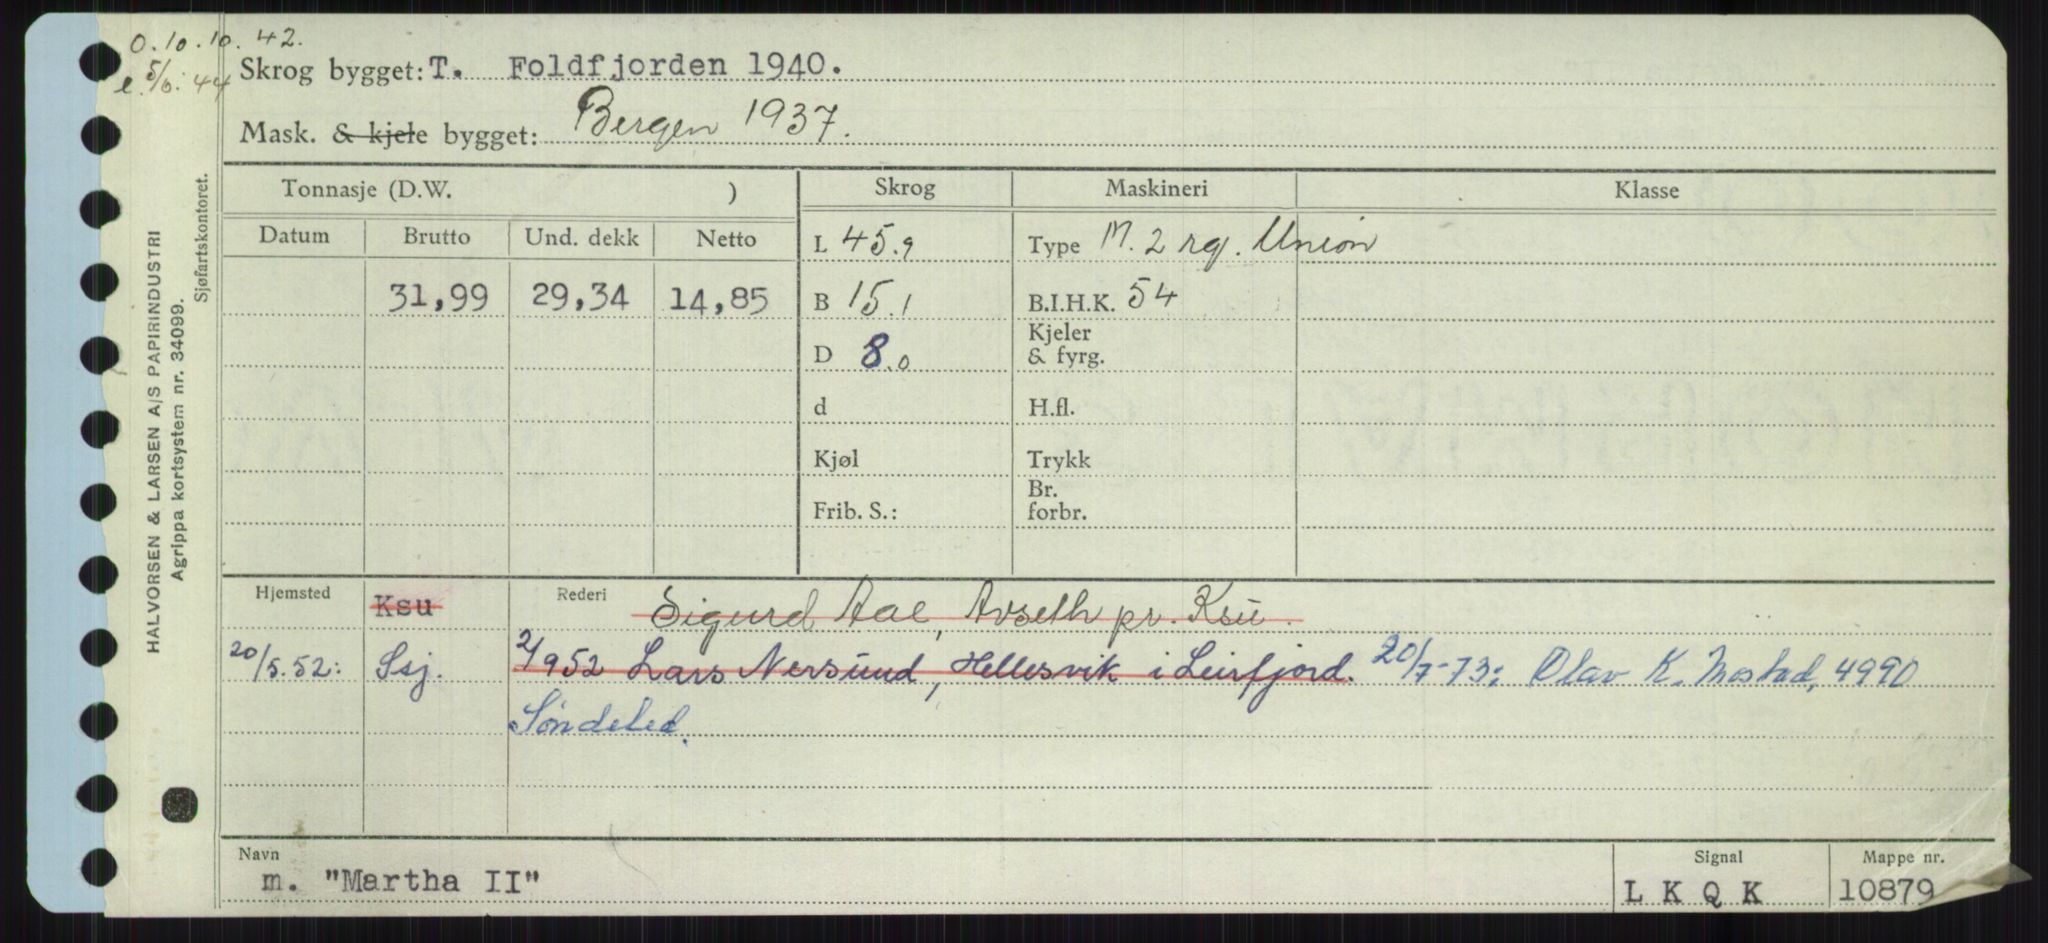 O. 10. 10. 42.
e. 5/6. 44
Skrog bygget: T. Foldfjorden 1940.
Mask. & kjele bygget: Bergen 1937.
HALVORSEN & LARSEN A/S PAPIRINDUSTRI
Agrippa kortsystem nr. 34099.
Sjøfartskontoret.
Tonnasje (D.W. ) Skrog Maskineri Klasse
Datum Brutto Und. dekk Netto L 45.9 Type M. 2 rg. Union
31,99 29,34 14,85 B 15.1 B.I.H.K. 54
D 8.0 Kjeler & fyrg.
d H.fl.
Kjøl Trykk
Frib. S.: Br. forbr.
Hjemsted Ksu Rederi Sigurd Aae, Avseth pr. Ksu.
20/5.52: Ssj. 2/952 Lars Nersund, Hellesvik i Leirfjord. 20/7-73: Olav K. Mostad, 4990
Søndeled.
Navn Signal Mappe nr.
m. "Martha II" L K Q K 10879